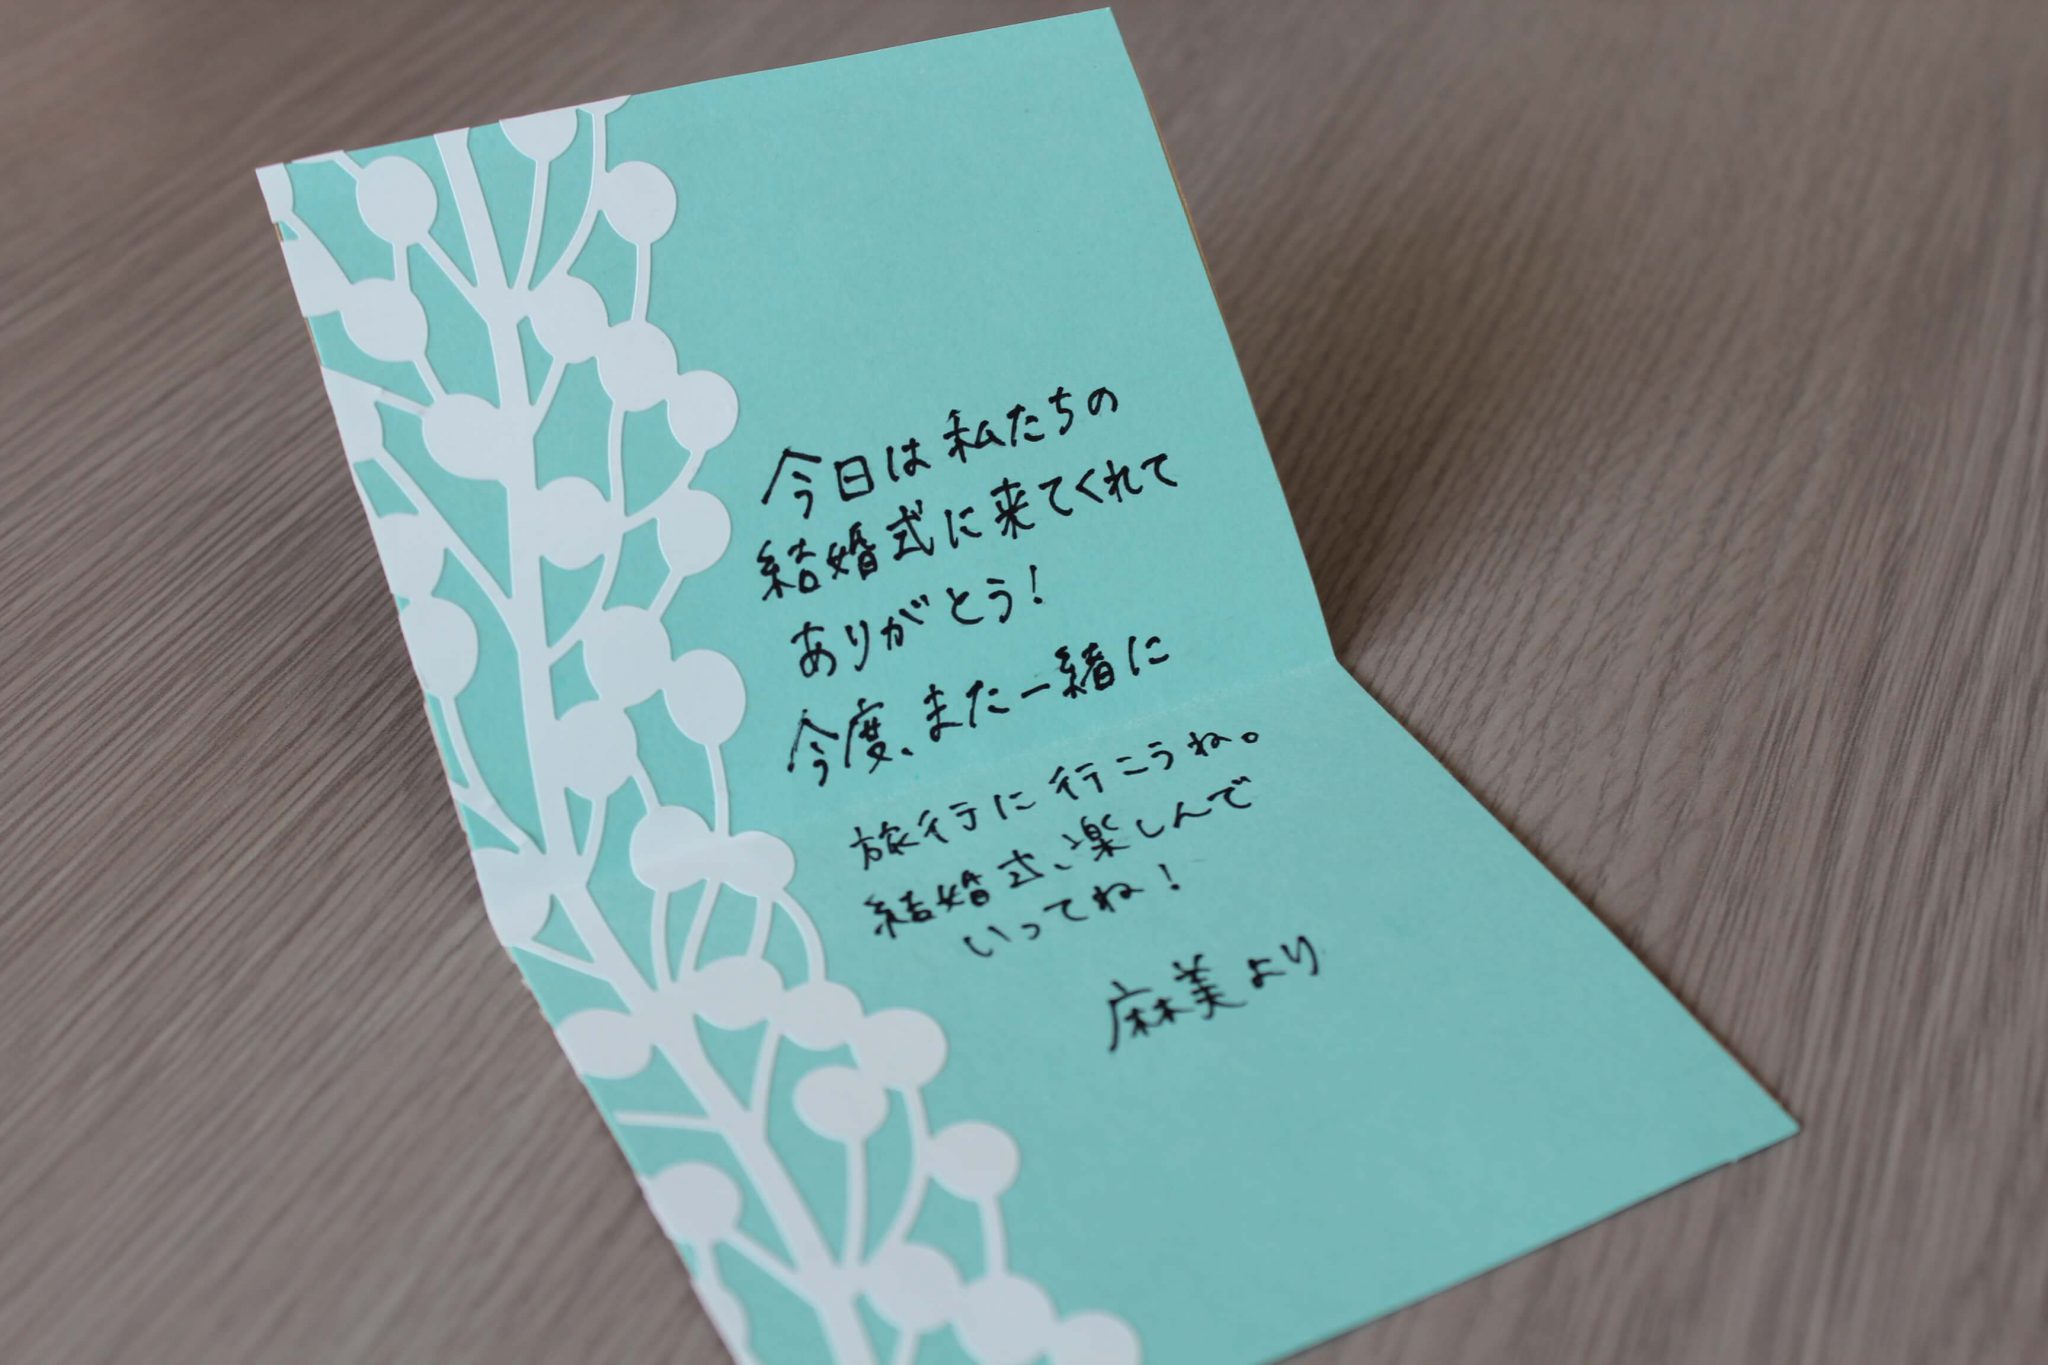 今日は私たちの
結婚式に来てくれて
ありがとう!
今度、また一緒に
旅行に行こうね。
結婚式、楽しんで
いってね!
麻美より